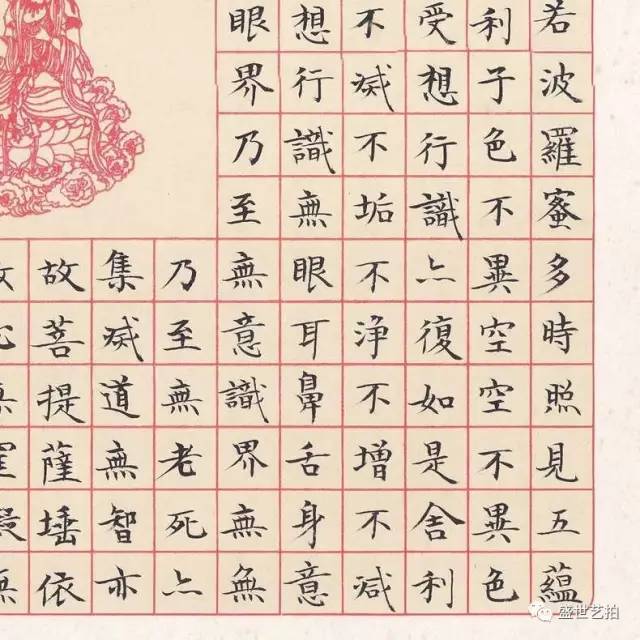 若波羅蜜多時照見五蘊
利子色不異空空不異色
受想行識亦復如是舍利
不滅不垢不淨不增不減
想行識無眼耳鼻舌身意
眼界乃至無意識界無無
乃至無老死亦
集滅道無智亦
故菩提薩埵依
盛世艺拍